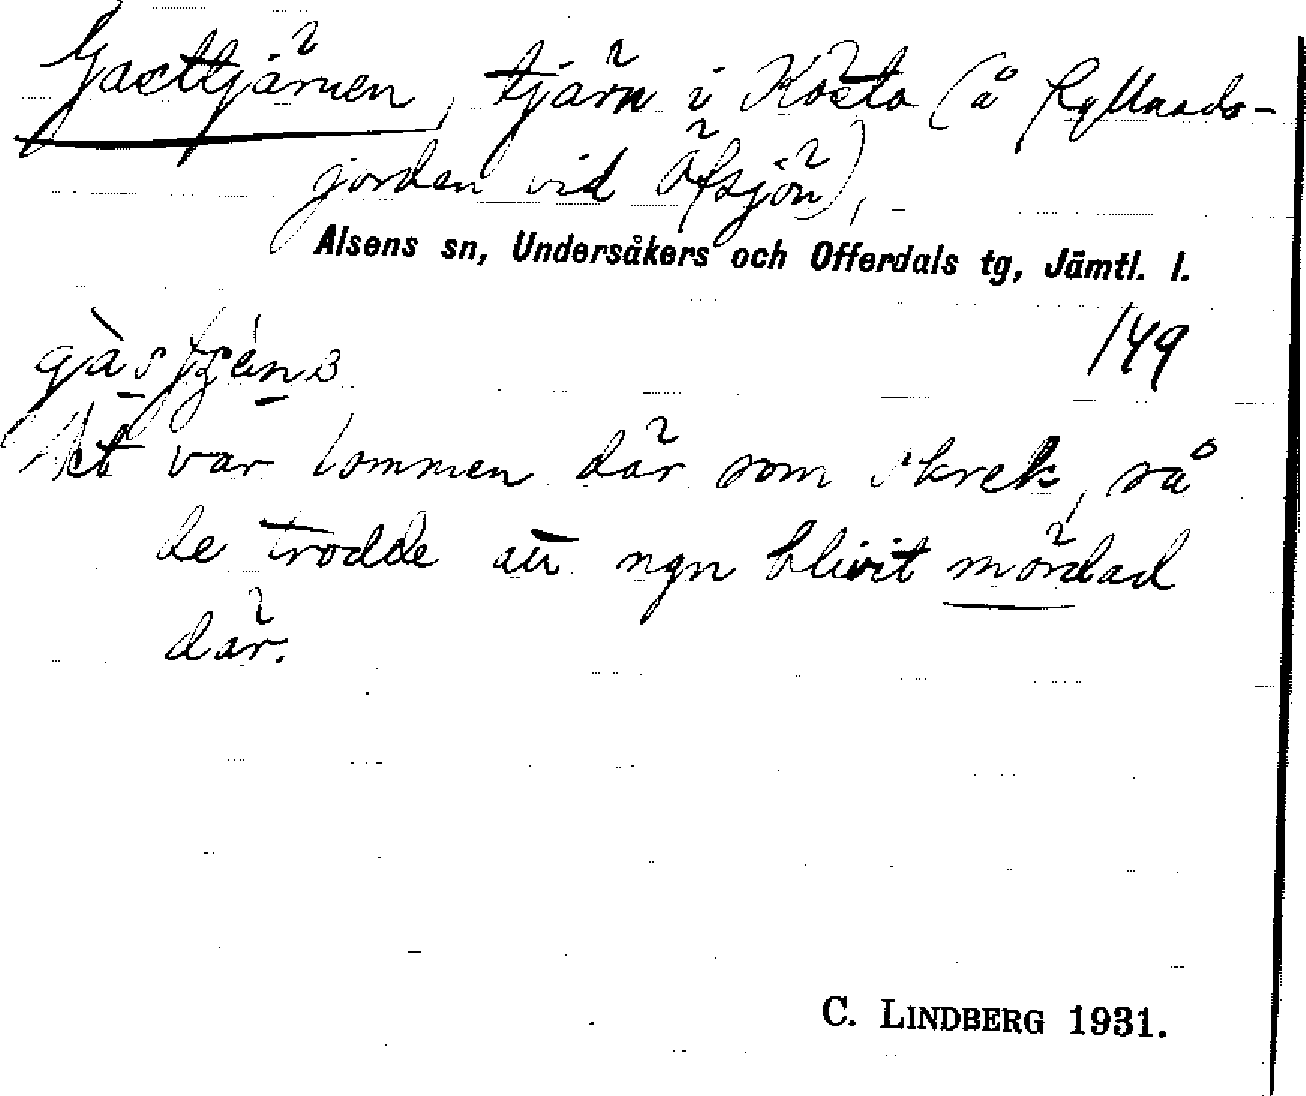 Gasttjärnen, tjärn i Kösta (å Hyllands-
jorden vid Öfsjön),
Alsens sn, Undersåkers och Offerdals tg, Jämtl. l.
149
Det var lommen där som skrek, så
de trodde att ngn blivit mördad
där.
C. LINDBERG 1931.